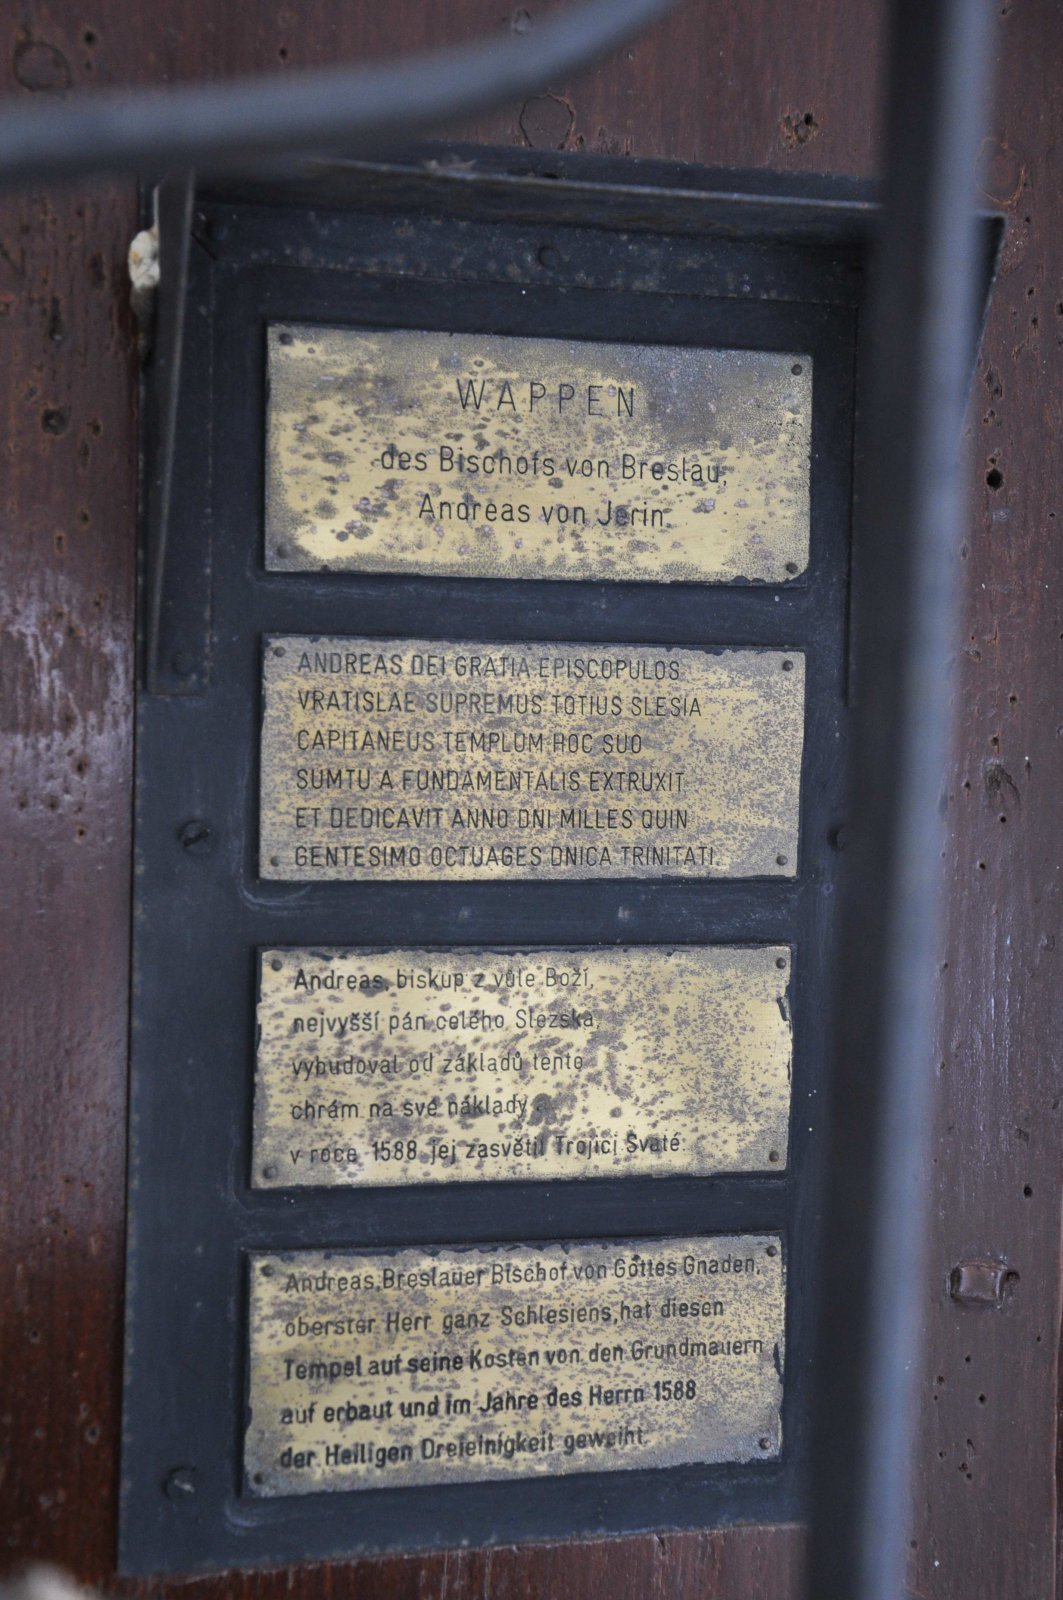 WAPPEN
des Bischofs von Breslau,
Andreas von Jerin.
ANDREAS DEI GRATIA EPISCOPULOS
VRATISLAE SUPREMUS TOTIUS SLESIA
CAPITANEUS TEMPLUM HOC SUO
SUMTU A FUNDAMENTALIS EXTRUXIT
ET DEDICAVIT ANNO DNI MILLES QUIN
GENTESIMO OCTUAGES DNICA TRINITATI.
Andreas, biskup z vůle Boží,
nejvyšší pán celého Slezska,
vybudoval od základů tento
chrám na své náklady
v roce 1588 jej zasvětil Trojici Svaté.
Andreas, Breslauer Bischof von Gottes Gnaden,
oberster Herr ganz Schlesiens, hat diesen
Tempel auf seine Kosten von den Grundmauern
auf erbaut und im Jahre des Herrn 1588
der Heiligen Dreieinigkeit geweiht.